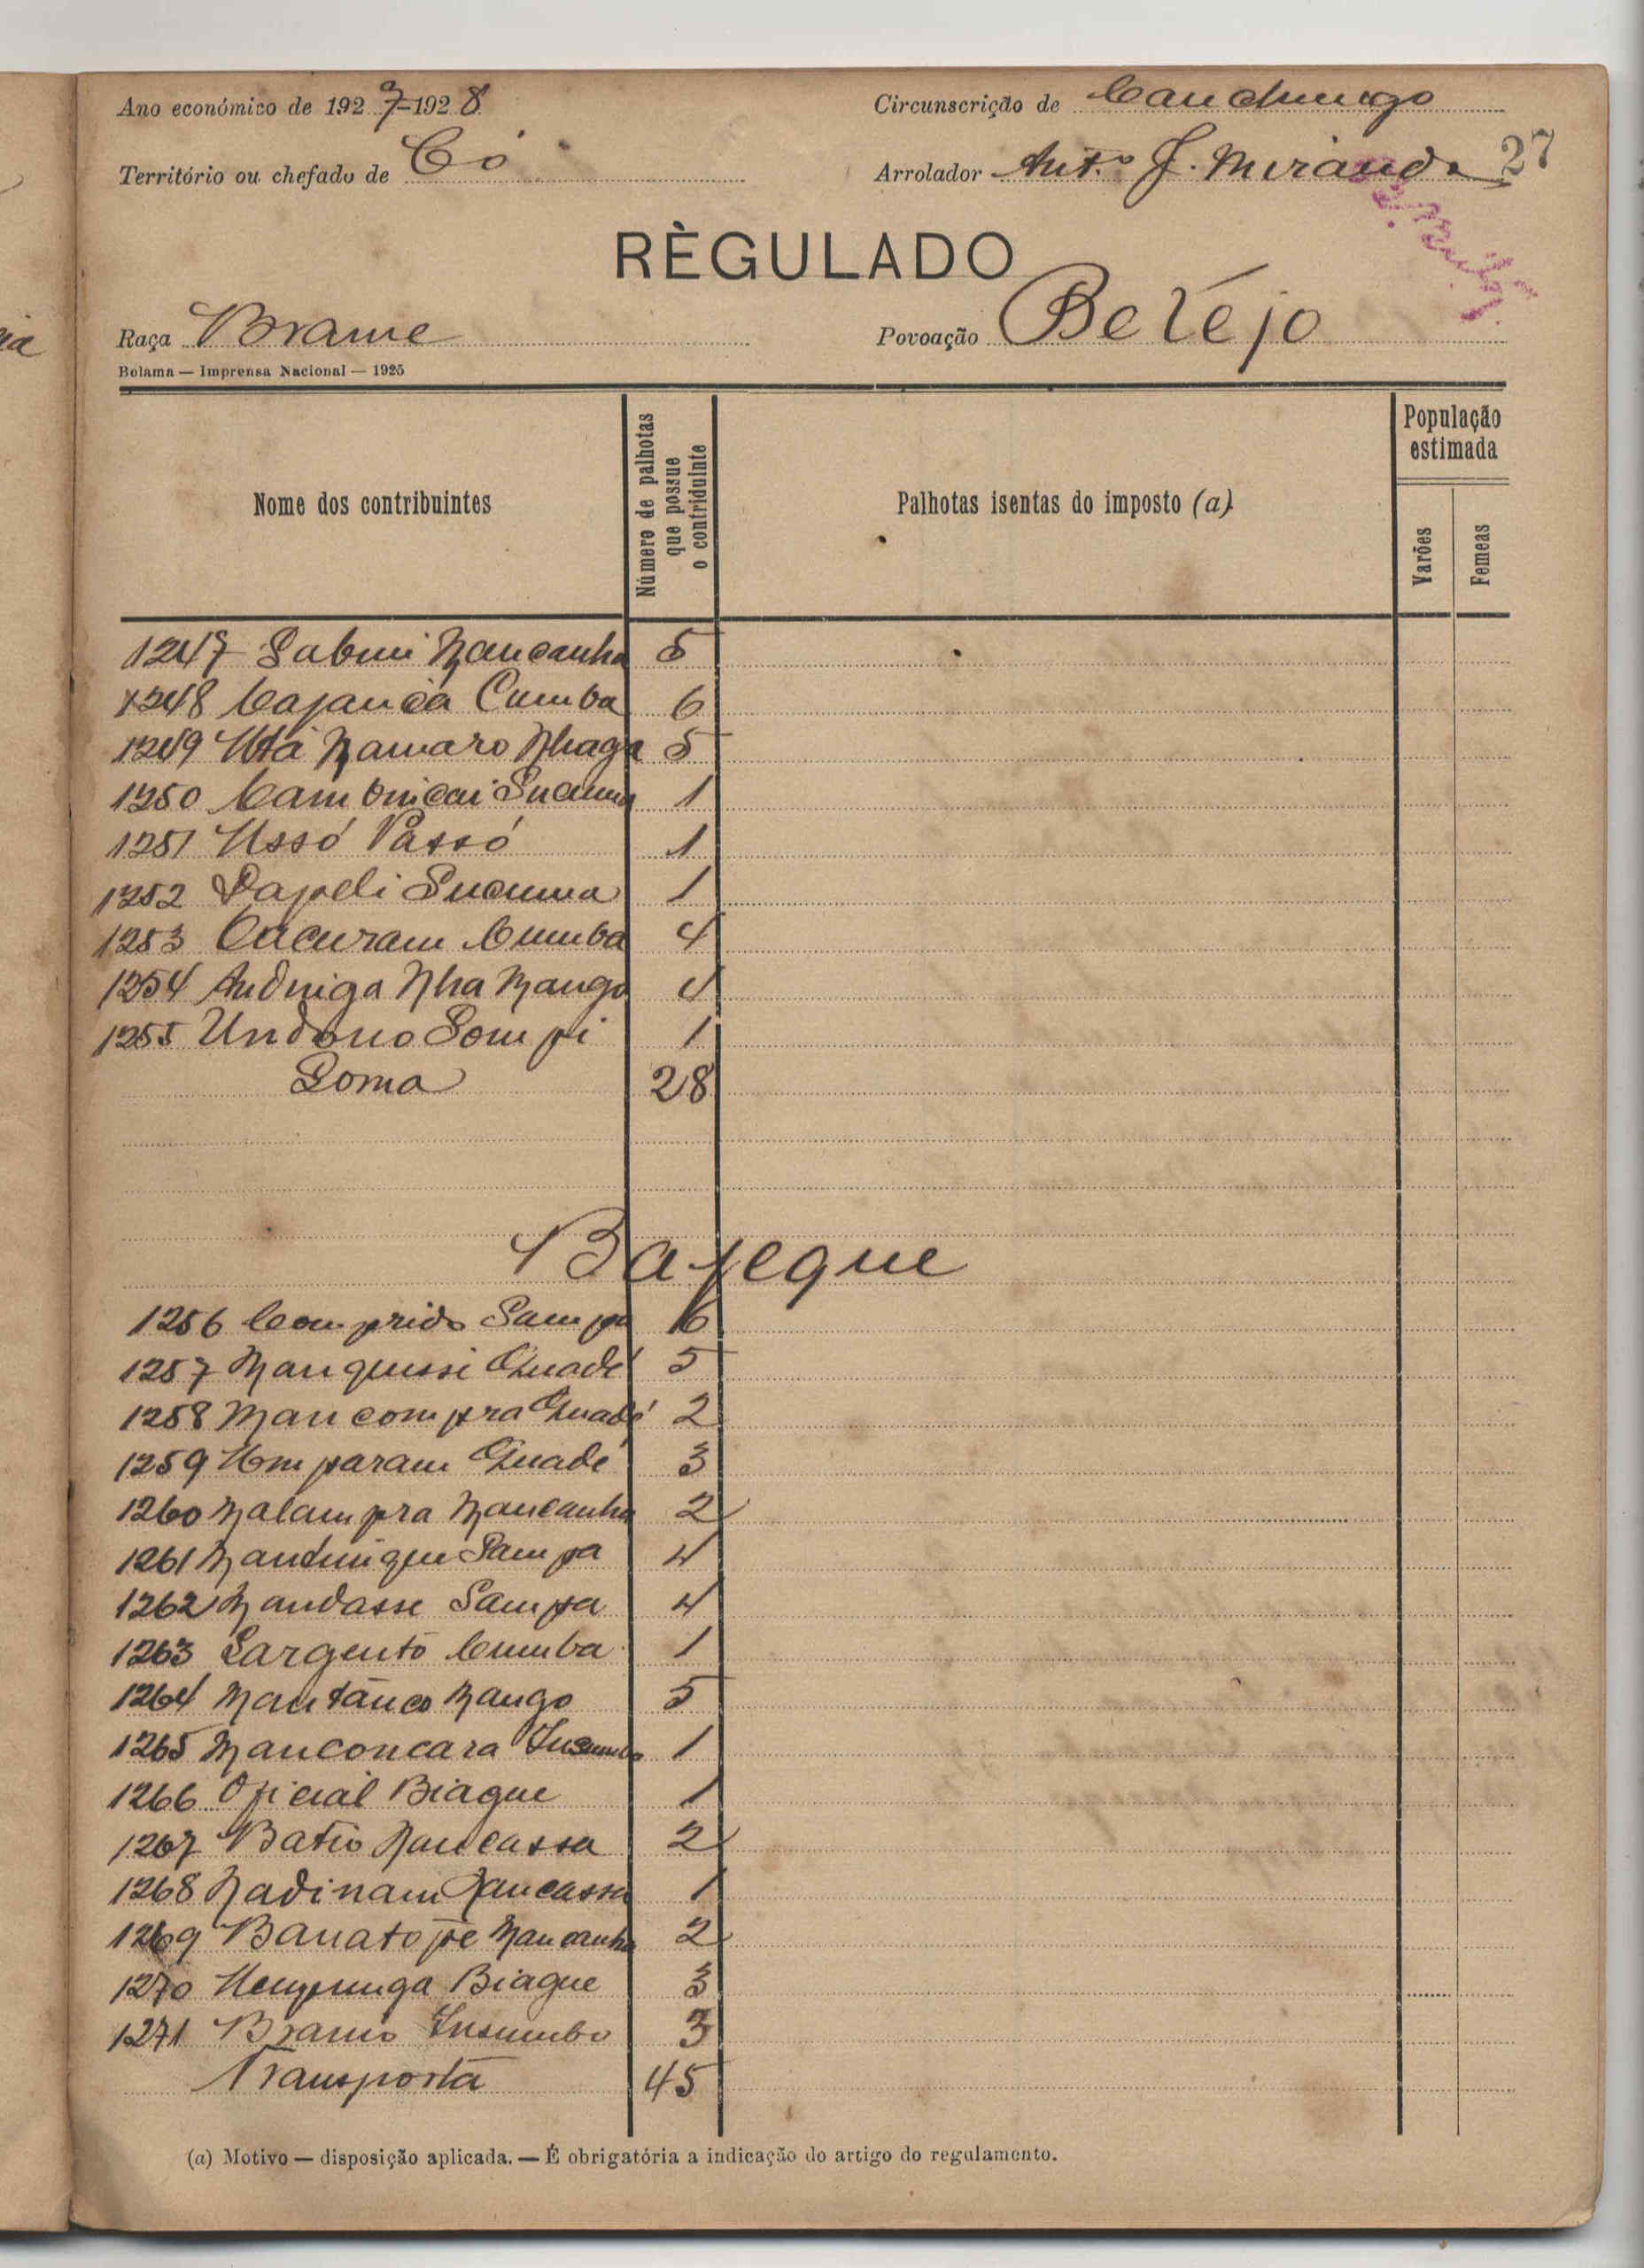 Ano económico de 1927-1928
Circunscrição de Canchungo
Território ou chefado de Có
Arrolador Ant.º J. Miranda
27
RÈGULADO
Raça Brame
Povoação Betejo
Bolama — Imprensa Nacional — 1925
Nome dos contribuintes
Número de palhotas que possue o contriduinte
Palhotas isentas do imposto (a)
População estimada
Varões
Femeas
1247 Sabui Mancanha 5
1248 Cajanca Cumba 6
1249 Utá Namaro Nhaga 5
1250 Sucuma 1
1251 Ussó Passó 1
1252 Papeli Sucuma 1
1253 Cacuram Cumba 4
1254 Nha Nango 4
1255 Undono Sompi 1
Soma 28
Bajeque
1256 Comprido Sampa 6
1257 Nanquissi Quadé 5
1258 Mancompra Quadé 2
1259 Umparam Quadé 3
1260 Nalampra Nancanha 2
1261 Sampa 4
1262 Nandasse Sampa 4
1263 Sargento Cumba 1
1264 Nantanco Nango 5
1265 Nanconcara Insumbo 1
1266 Oficial Biague 1
1267 Batio Nancassa 2
1268 Nadinam Nancassa 1
1269 Banatope Nancanha 2
1270 Biague 3
1271 Insumbo 3
Transporta 45
(a) Motivo — disposição aplicada. — É obrigatória a indicação do artigo do regulamento.